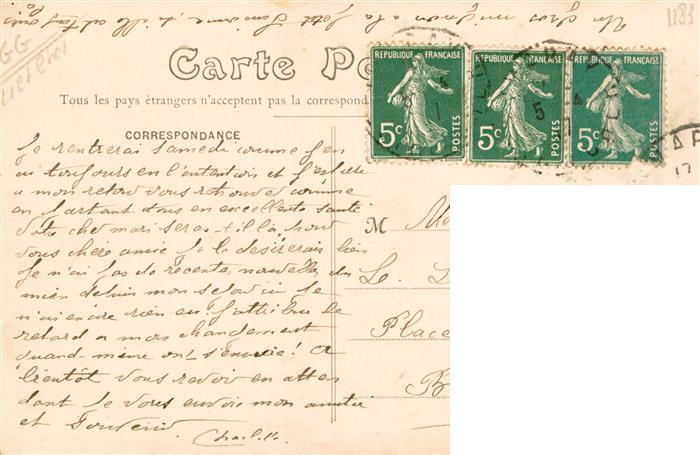 Un gros mignon à la petite Suzanne, si elle
1183
GG
Carte Po
Tous les pays étrangers n'acceptent pas la correspond
CORRESPONDANCE
RÉPUBLIQUE FRANÇAISE
5c
POSTES
RÉPUBLIQUE FRANÇAISE
5c
POSTES
RÉPUBLIQUE FRANÇAISE
5c
POSTES
17
Je rentrerai samedi comme j'en
ai toujours eu l'intention et j'espère
a mon retour vous retrouver comme
en partant tous en excellente santé
Votre cher mari sera-t-il là, pour
vous chère amie je le désirerais bien
Je n'ai pas de recentes nouvelles du
mien depuis mon séjour ici je
n'ai encore rien eu. J'attribue le
retard a mon changement
quand-même on s'ennuie! A
bientôt vous revoir en atten
dant je vous envoie mon amitié
et Souvenir
M
Place